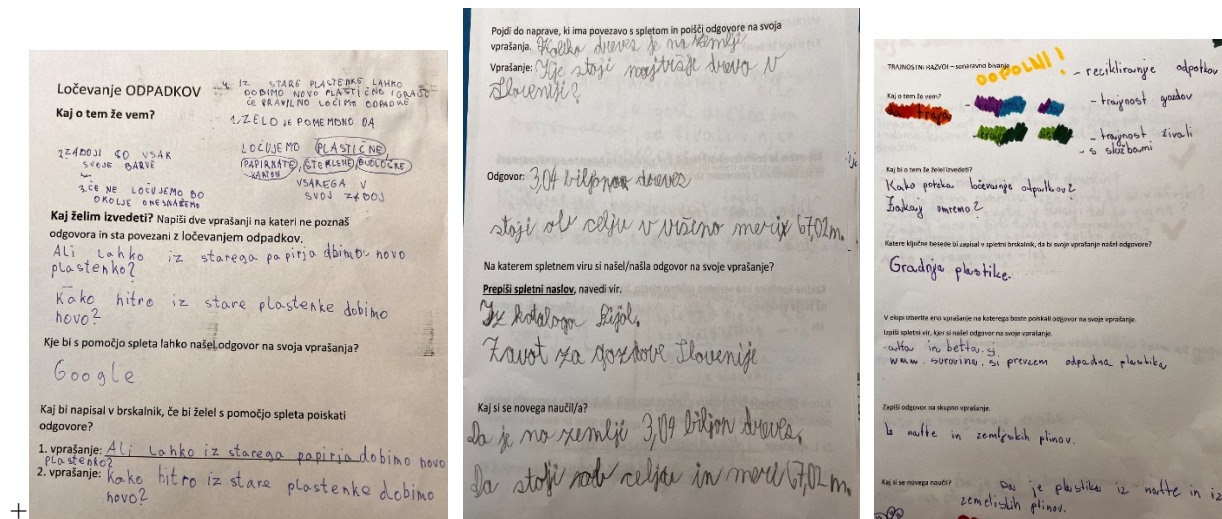 Ločevanje ODPADKOV
4. IZ STARE PLASTENKE LAHKO
DOBIMO NOVO PLASTIČNO IGRAČO
ČE PRAVILNO LOČIMO ODPADKE
Kaj o tem že vem?
1. ZELO JE POMEMBNO DA
LOČUJEMO PLASTIČNE,
PAPIRNATE, STEKLENE, BIOLOŠKE
KARTON
VSAKEGA V
SVOJ ZABOJ
2 ZABOJI SO VSAK
SVOJE BARVE
3. ČE NE LOČUJEMO BO
OKOLJE ONESNAŽENO
Kaj želim izvedeti? Napiši dve vprašanji na kateri ne poznaš
odgovora in sta povezani z ločevanjem odpadkov.
Ali lahko iz starega papirja dbimo novo
plastenko?
Kako hitro iz stare plastenke dobimo
novo?
Kje bi s pomočjo spleta lahko našel odgovor na svoja vprašanja?
Google
Kaj bi napisal v brskalnik, če bi želel s pomočjo spleta poiskati
odgovore?
1. vprašanje: Ali lahko iz starega papirja dobimo novo
plastenko?
2. vprašanje: Kako hitro iz stare plastenke dobimo
novo?
Pojdi do naprave, ki ima povezavo s spletom in poišči odgovore na svoja
vprašanja. Koliko dreves je na zemlji
Vprašanje: Kje stoji najvišje drevo v
Sloveniji?
Odgovor: 3,04 biljonov dreves
stoji ob celju v višino meri 67,02m.
Na katerem spletnem viru si našel/našla odgovor na svoje vprašanje?
Prepiši spletni naslov, navedi vir.
Iz kataloga
Zavot za gozdove Slovenije
Kaj si se novega naučil/a?
Da je na zemlji 3,04 biljon dreves.
Da stoji celju in meri 67,02 m.
TRAJNOSTNI RAZVOJ – sonaravno bivanje
DOPOLNI!
- recikliranje odpatkov
Kaj o tem že vem?
traja
- trajnost gozdov
- trajnost živali
- s službami
Kaj bi o tem še želel izvedeti?
Kako poteka ločevanje odpatkov?
Zakaj umremo?
Katere ključne besede bi zapisal v spletni brskalnik, da bi svoje vprašanje našel odgovore?
Gradnja plastike.
V ekipi izberite eno vprašanje na katerega boste poiskali odgovor na svoje vprašanje.
Izpiši spletni vir, kjer si našel odgovor na svoje vprašanje.
in betta.
www. surovina. si prevzem odpadna plastika
Zapiši odgovor na skupno vprašanje.
Iz nafte in zemljskih plinov.
Kaj si se novega naučil?
Da je plastika iz nafte in iz
zemeljskih plinov.